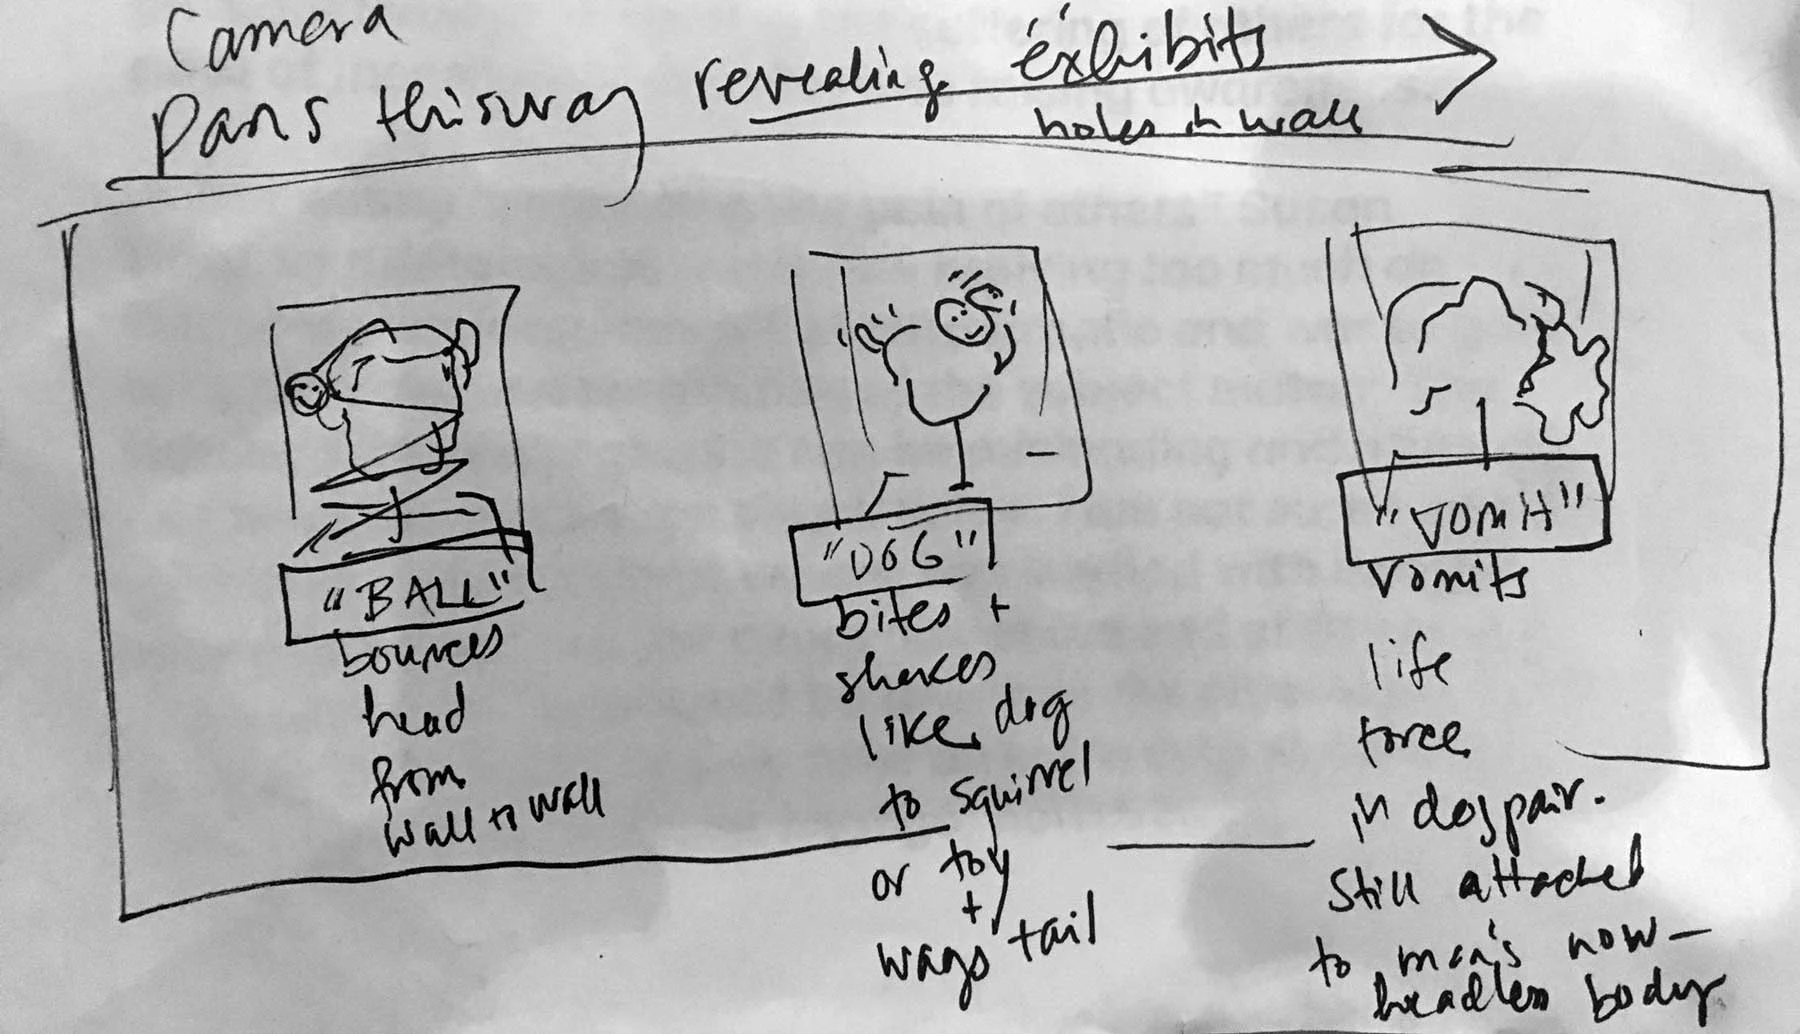 Camera
pans this way revealing exhibits
holes in wall
"BALL"
bounces
head
from
wall to wall
"DOG"
bites +
shakes
like dog
to squirrel
or toy
+
wags tail
"VOMIT"
vomits
life
force
in despair.
Still attached
to man's now-
headless body